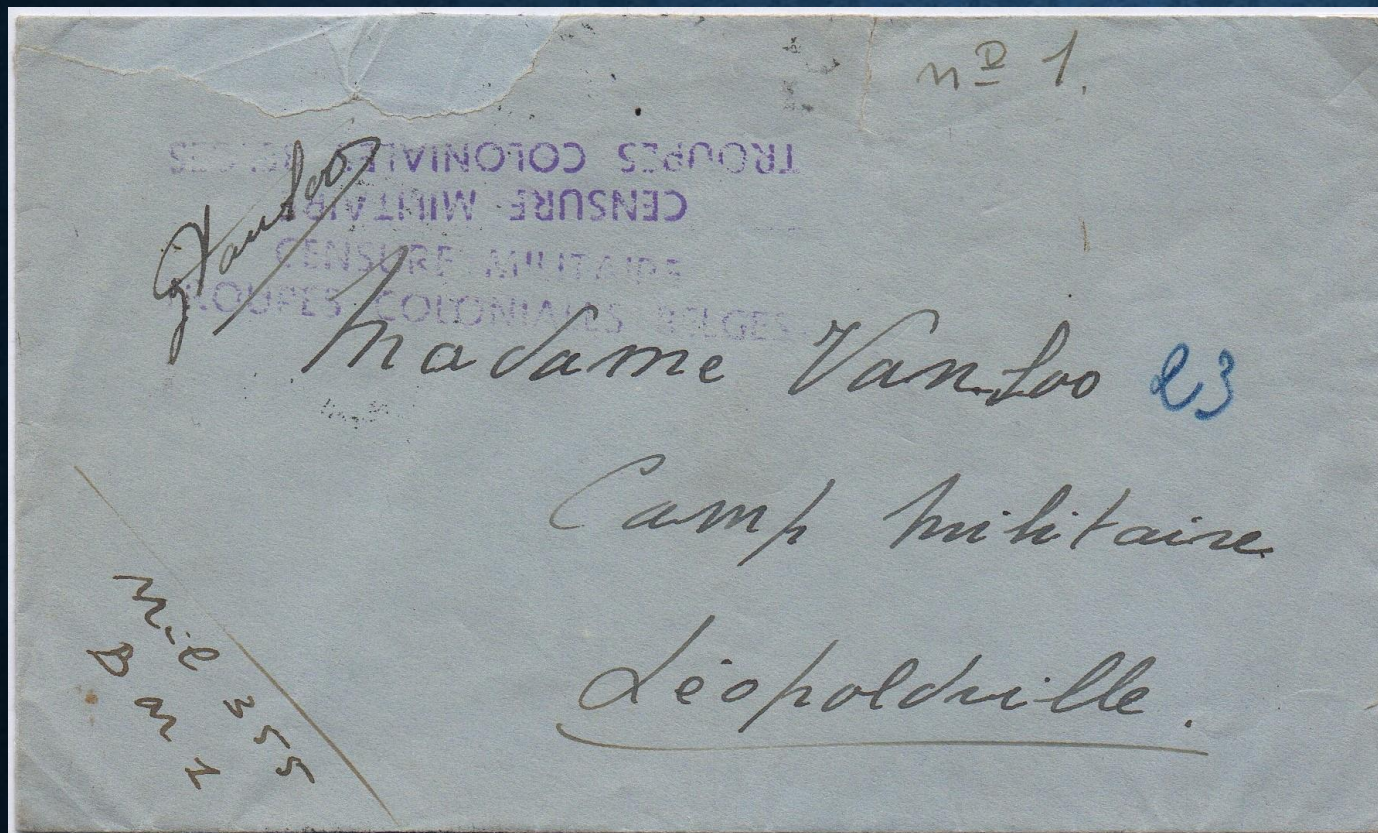 nº 1.
TROUPES COLONIALES BELGES
CENSURE MILITAIRE
CENSURE MILITAIRE
TROUPES COLONIALES BELGES
Madame Van Loo 23
Camp militaire
Léopoldville.
Mil 355